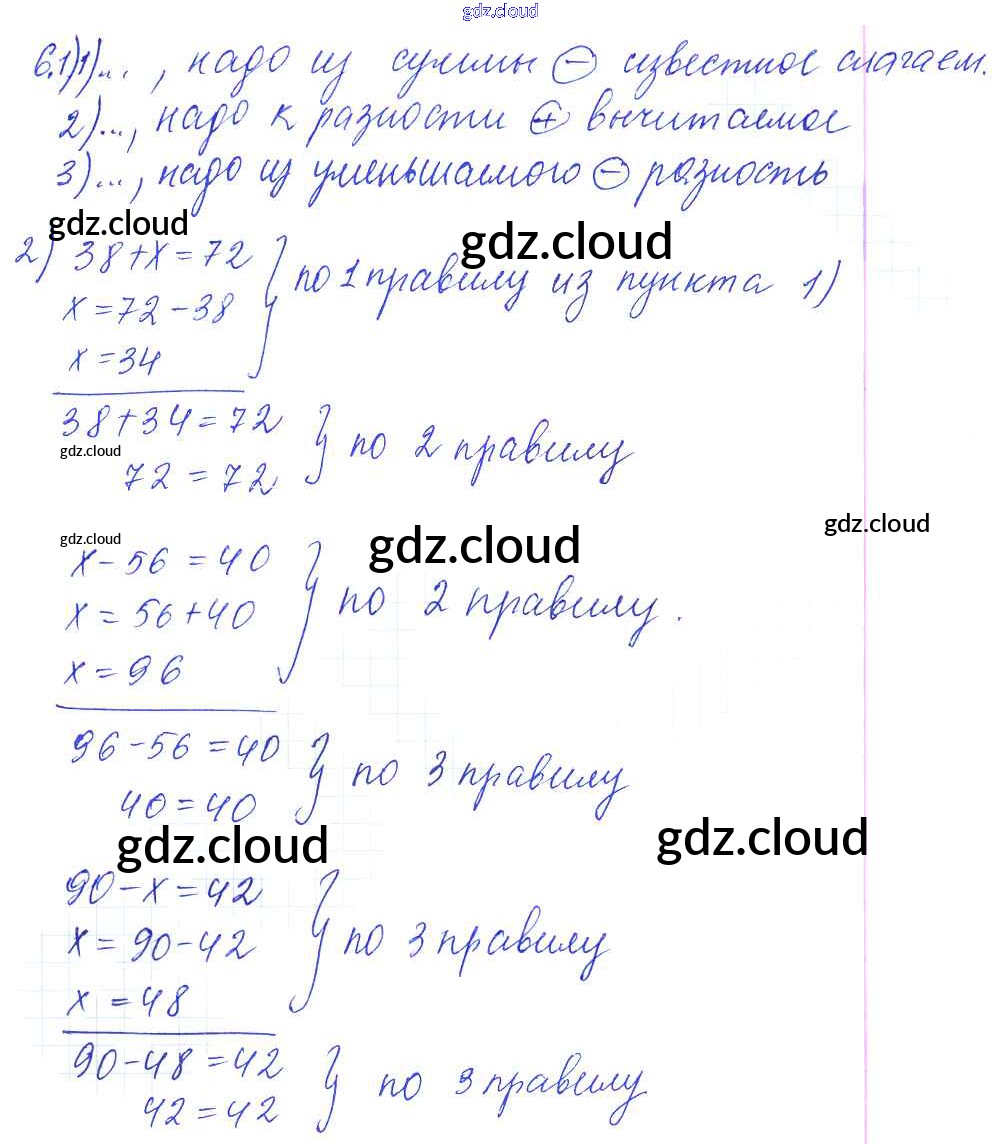 gdz.cloud
6.1)1)..., надо из суммы ⊖ известное слагаем.
2)..., надо к разности ⊕ вычитаемое
3)..., надо из уменьшаемого ⊖ разность
gdz.cloud
gdz.cloud
2) 38+x=72 } по 1 правилу из пункта 1)
x=72-38
x=34
38+34=72 } по 2 правилу
gdz.cloud
72=72
gdz.cloud
gdz.cloud
gdz.cloud
x-56=40
x=56+40 } по 2 правилу.
x=96
96-56=40 } по 3 правилу
40=40
gdz.cloud
gdz.cloud
90-x=42
x=90-42 } по 3 правилу
x=48
90-48=42 } по 3 правилу
42=42